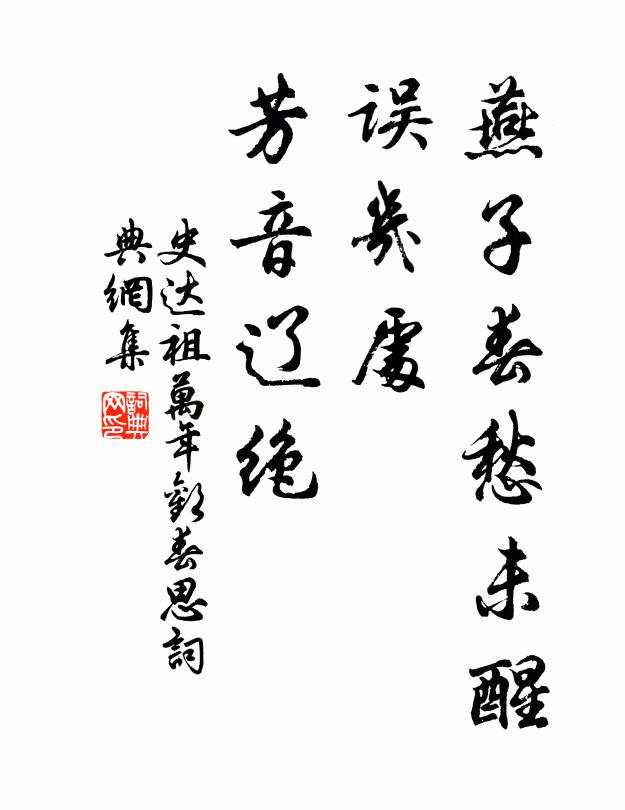 燕子春愁未醒
误幾處
芳音辽绝
史达祖萬年歡春思詞
典網集
詞典网印